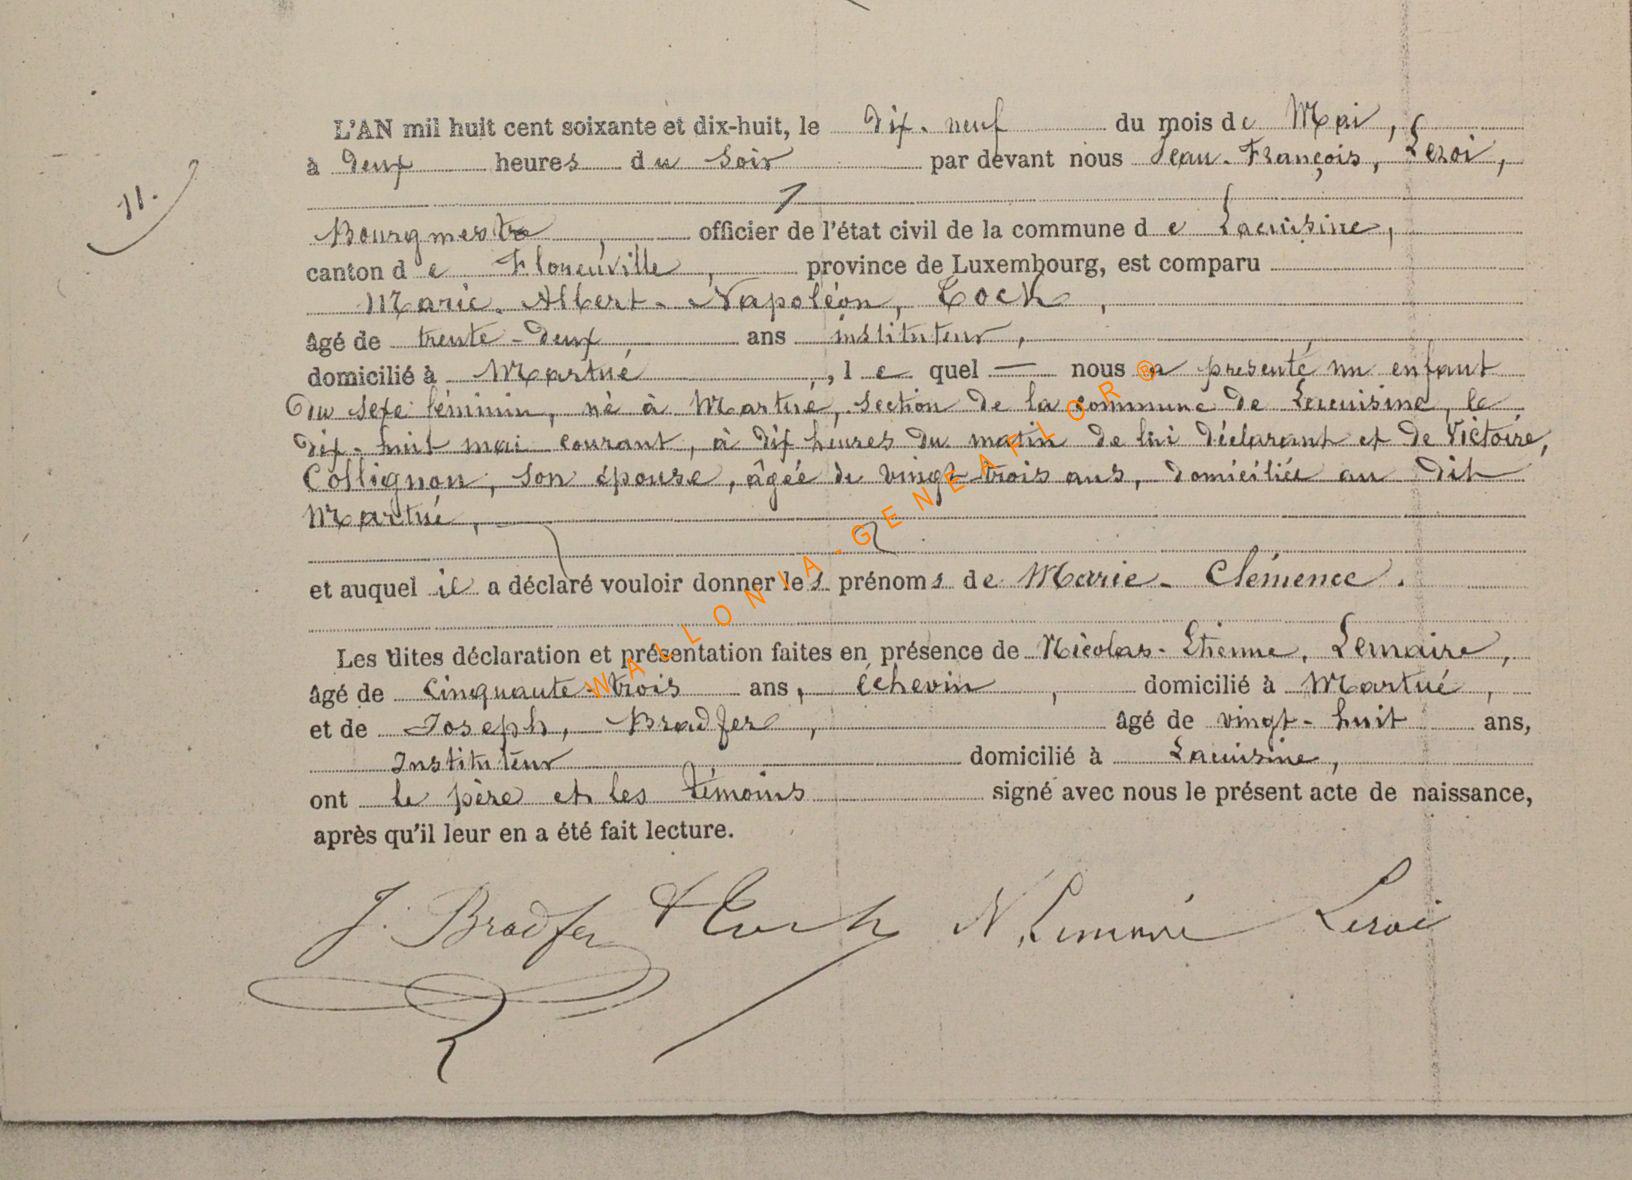 L'AN mil huit cent soixante et dix-huit, le Dix-neuf du mois de Mai,
à Deux heures du soir par devant nous Jean-François, Leroi,
11.
Bourgmestre, officier de l'état civil de la commune de Lacuisine,
canton de Florenville, province de Luxembourg, est comparu
Marie-Albert-Napoléon, Coch,
âgé de trente-deux ans instituteur,
domicilié à Martué, lequel — nous a presenté un enfant
Du sexe féminin, né à Martué, section de la commune de Lacuisine, le
dix-huit mai courant, à dix heures du matin de lui déclarant et de Victoire,
Collignon, son épouse, âgée de vingt-trois ans, domiciliée au dit
Martué,
et auquel il a déclaré vouloir donner les prénoms de Marie-Clémence.
Les dites déclaration et présentation faites en présence de Nicolas-Etienne, Lemaire,
âgé de Cinquante-trois ans, échevin, domicilié à Martué,
et de Joseph, Bradfer, âgé de vingt-huit ans,
Instituteur domicilié à Lacuisine,
ont le père et les témoins signé avec nous le présent acte de naissance,
après qu'il leur en a été fait lecture.
J. Bradfer Coch N. Lemaire Leroi
WALLONIA-GENEAFLOR®